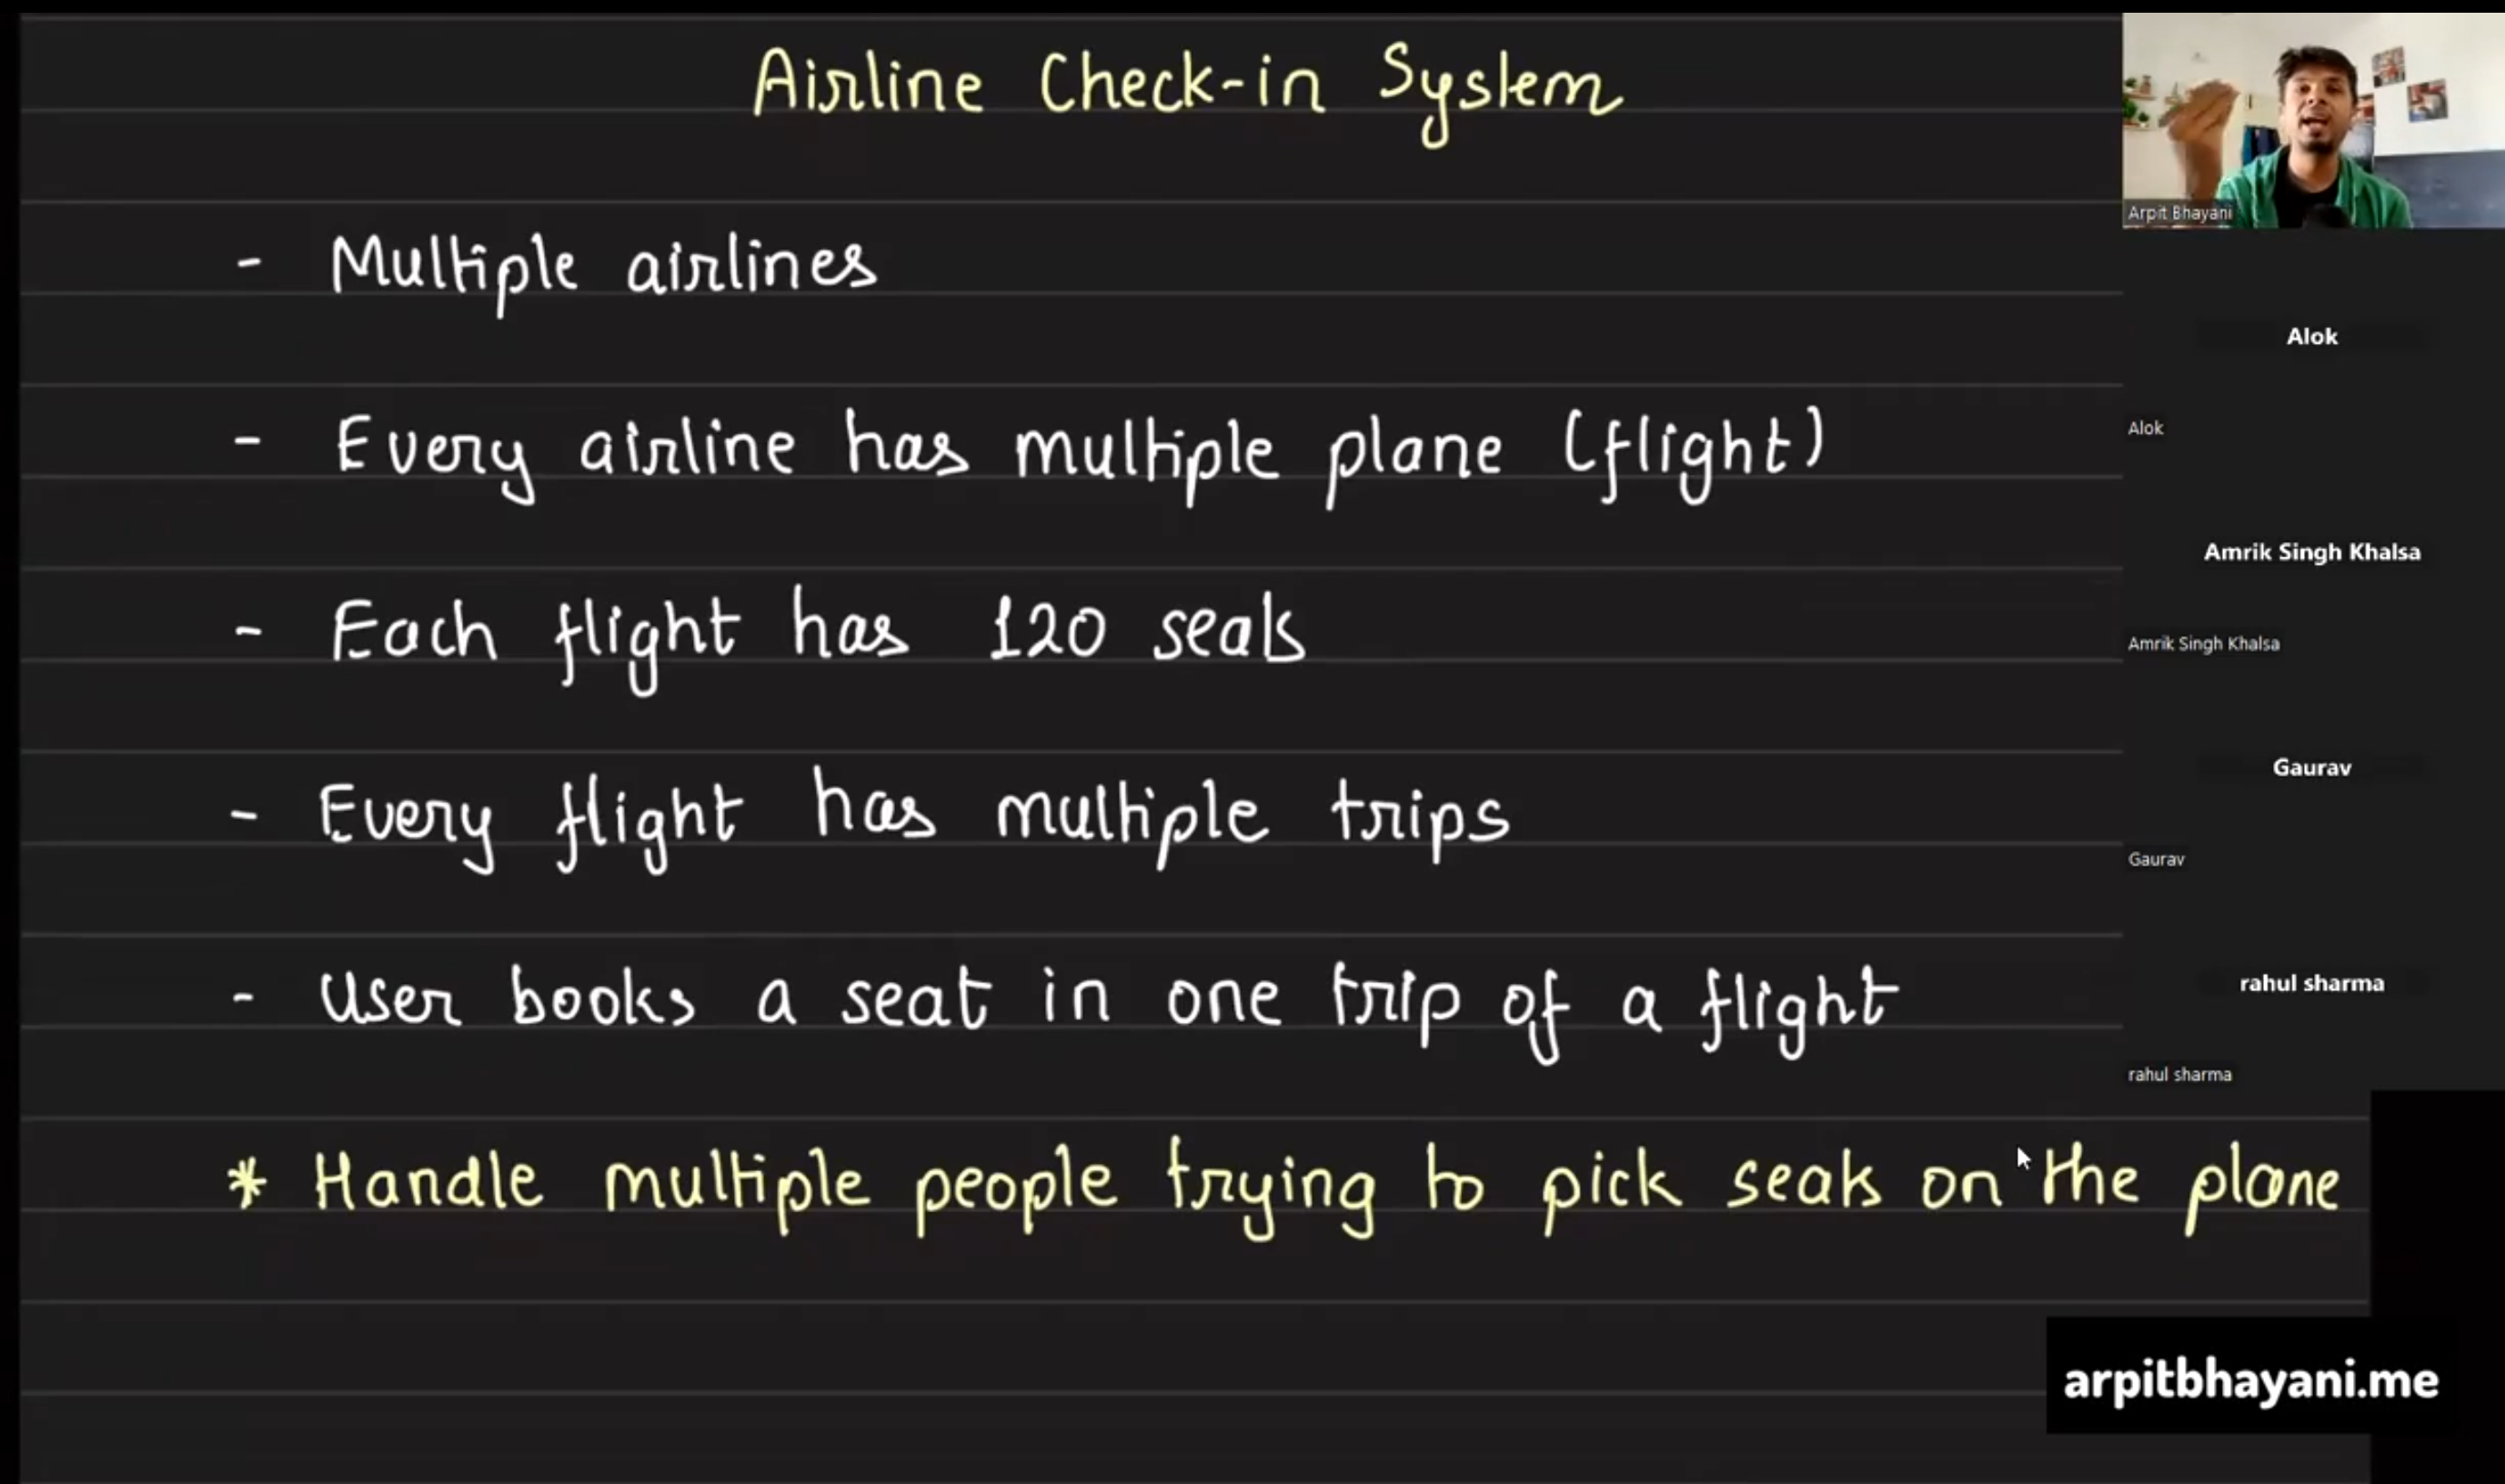 Airline Check-in System
- Multiple airlines
- Every airline has multiple plane (flight)
- Each flight has 120 seats
- Every flight has multiple trips
- User books a seat in one trip of a flight
* Handle multiple people trying to pick seats on the plane
Arpit Bhayani
Alok
Alok
Amrik Singh Khalsa
Amrik Singh Khalsa
Gaurav
Gaurav
rahul sharma
rahul sharma
arpitbhayani.me